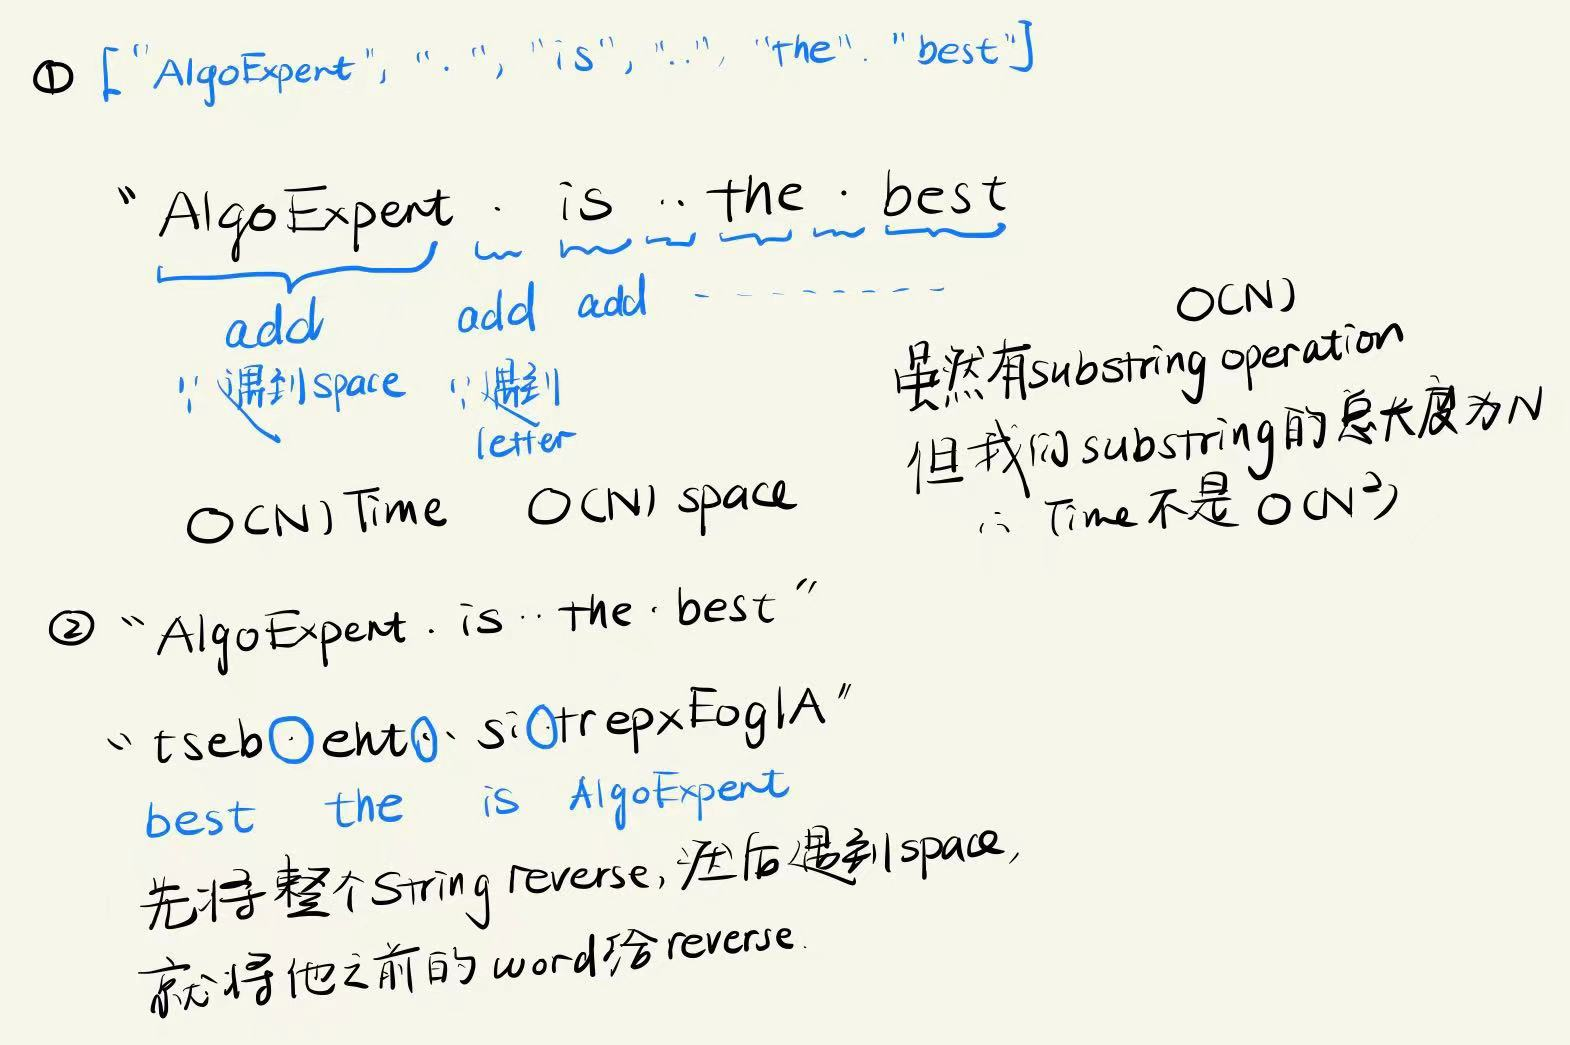 ① ["AlgoExpert", ".", "is", "..", "the". "best"]
"AlgoExpert . is .. the . best
add add add - - - - - - - -
∵遇到space ∵遇到
letter
O(N) Time O(N) space
O(N)
虽然有substring operation
但我们substring的总长度为N
∴ Time不是O(N²)
② "AlgoExpert . is .. the . best"
"tseb . eht .. si . trepxEoglA"
best the is AlgoExpert
先将整个String reverse,然后遇到space,
就将他之前的word给reverse.